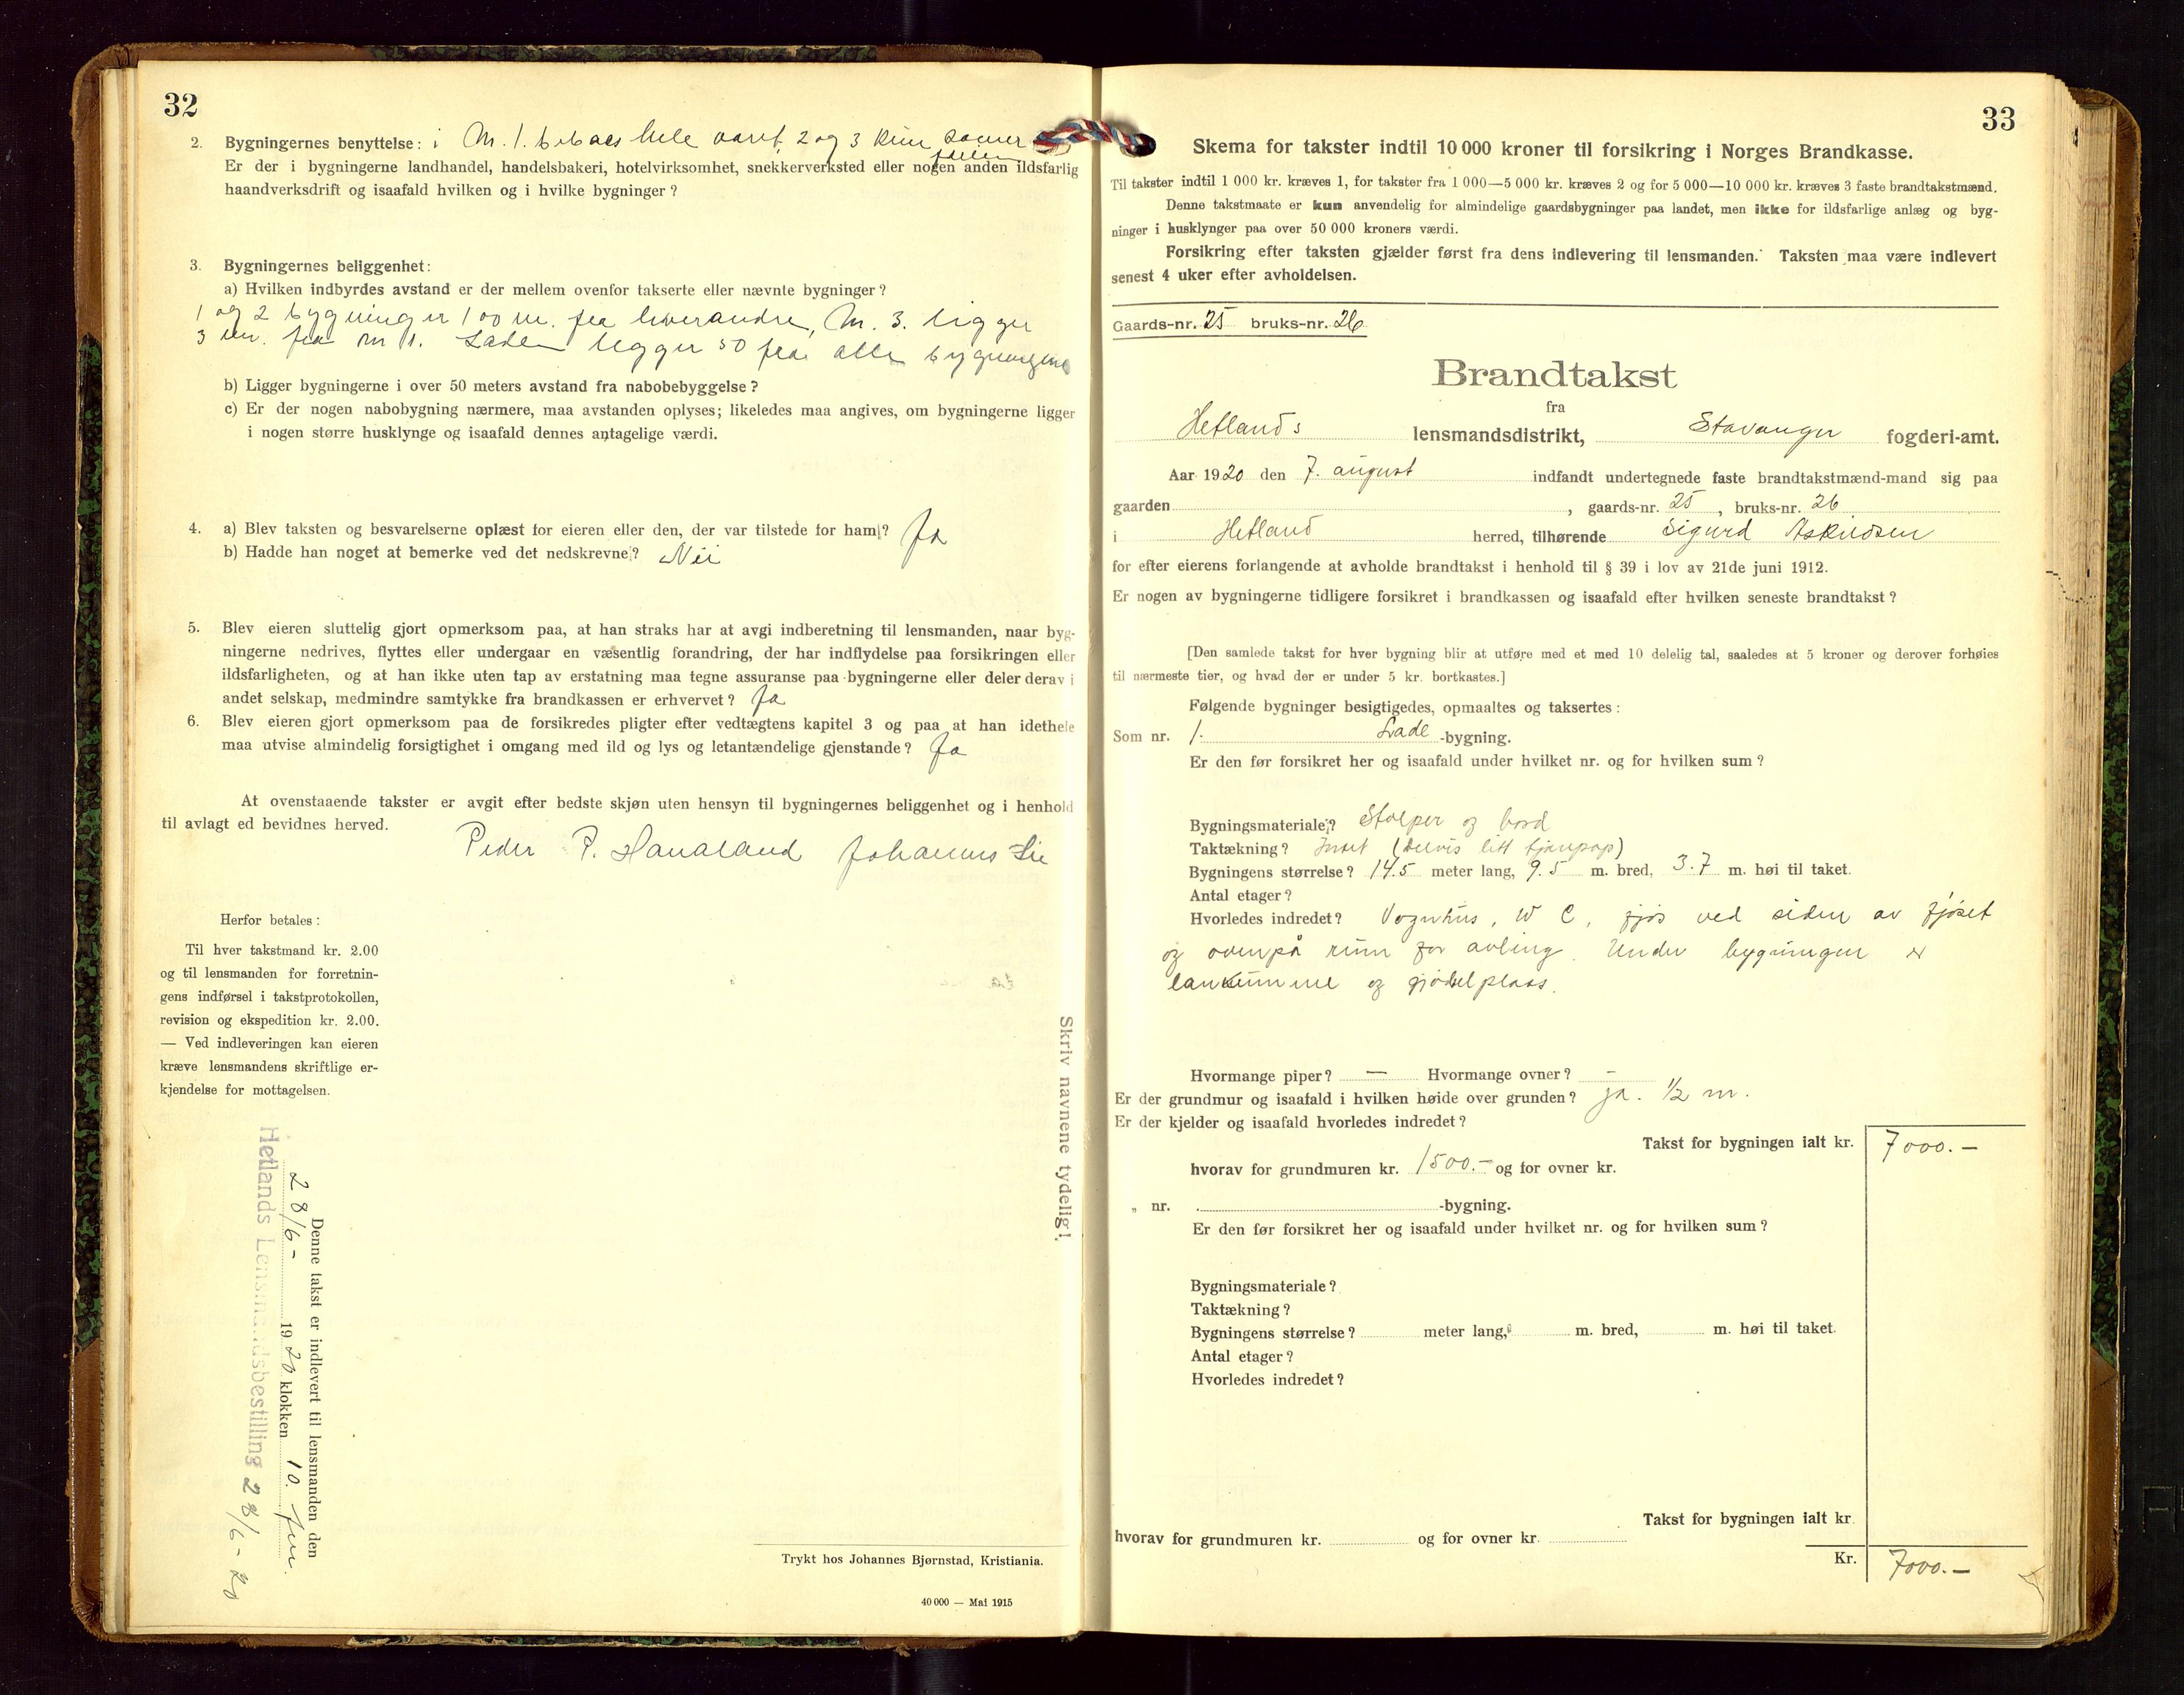 32
2. Bygningernes benyttelse: i Nr. 1. beboes hele aaret, 2 og 3 kun somer
Er der i bygningerne landhandel, handelsbakeri, hotelvirksomhet, snekkerverksted eller nogen anden ildsfarlig
haandverksdrift og isaafald hvilken og i hvilke bygninger?
3. Bygningernes beliggenhet:
a) Hvilken indbyrdes avstand er der mellem ovenfor takserte eller nævnte bygninger?
1 og 2 bygninger 100 m. fra hverandre, Nr. 3. ligger
3 m. fra Nr 1. Laden ligger 50 fra alle bygningene
b) Ligger bygningerne i over 50 meters avstand fra nabobebyggelse?
c) Er der nogen nabobygning nærmere, maa avstanden oplyses; likeledes maa angives, om bygningerne ligger
i nogen større husklynge og isaafald dennes antagelige værdi.
4. a) Blev taksten og besvarelserne oplæst for eieren eller den, der var tilstede for ham? Ja
b) Hadde han noget at bemerke ved det nedskrevne? Nei
5. Blev eieren sluttelig gjort opmerksom paa, at han straks har at avgi indberetning til lensmanden, naar byg-
ningerne nedrives, flyttes eller undergaar en væsentlig forandring, der har indflydelse paa forsikringen eller
ildsfarligheten, og at han ikke uten tap av erstatning maa tegne assuranse paa bygningerne eller deler derav i
andet selskap, medmindre samtykke fra brandkassen er erhvervet? Ja
6. Blev eieren gjort opmerksom paa de forsikredes pligter efter vedtægtens kapitel 3 og paa at han idethele
maa utvise almindelig forsigtighet i omgang med ild og lys og letantændelige gjenstande? Ja
At ovenstaaende takster er avgit efter bedste skjøn uten hensyn til bygningernes beliggenhet og i henhold
til avlagt ed bevidnes herved.
Peder P. Hanaland Johannes Lie
Herfor betales:
Til hver takstmand kr. 2.00
og til lensmanden for forretnin-
gens indførsel i takstprotokollen,
revision og ekspedition kr. 2.00.
— Ved indleveringen kan eieren
kræve lensmandens skriftlige er-
kjendelse for mottagelsen.
Skriv navnene tydelig!
Denne takst er indlevert til lensmanden den
28/6- 1920 klokken 10. fm.
Hetlands Lensmandsbestilling 28/6-20
Trykt hos Johannes Bjørnstad, Kristiania.
40 000 — Mai 1915
33
Skema for takster indtil 10 000 kroner til forsikring i Norges Brandkasse.
Til takster indtil 1 000 kr. kræves 1, for takster fra 1 000—5 000 kr. kræves 2 og for 5 000—10 000 kr. kræves 3 faste brandtakstmænd.
Denne takstmaate er kun anvendelig for almindelige gaardsbygninger paa landet, men ikke for ildsfarlige anlæg og byg-
ninger i husklynger paa over 50 000 kroners værdi.
Forsikring efter taksten gjælder først fra dens indlevering til lensmanden. Taksten maa være indlevert
senest 4 uker efter avholdelsen.
Gaards-nr. 25 bruks-nr. 26
Brandtakst
fra
Hetlands lensmandsdistrikt, Stavanger fogderi-amt.
Aar 1920 den 7. august indfandt undertegnede faste brandtakstmænd-mand sig paa
gaarden , gaards-nr. 25 , bruks-nr. 26
i Hetland herred, tilhørende Sigurd Askildsen
for efter eierens forlangende at avholde brandtakst i henhold til § 39 i lov av 21de juni 1912.
Er nogen av bygningerne tidligere forsikret i brandkassen og isaafald efter hvilken seneste brandtakst?
[Den samlede takst for hver bygning blir at utføre med et med 10 delelig tal, saaledes at 5 kroner og derover forhøies
til nærmeste tier, og hvad der er under 5 kr. bortkastes.]
Følgende bygninger besigtigedes, opmaaltes og taksertes:
Som nr. 1. Lade -bygning.
Er den før forsikret her og isaafald under hvilket nr. og for hvilken sum?
Bygningsmateriale? Stolper og bord
Taktækning? (delvis litt tjærpap)
Bygningens størrelse? 14.5 meter lang, 9.5 m. bred, 3.7 m. høi til taket.
Antal etager?
Hvorledes indredet? Vognhus, W C, fjøs ved siden av fjøset
og ovenpå rum for avling. Under bygningen er
lankumme og gjødselplass.
Hvormange piper? — Hvormange ovner? –
Er der grundmur og isaafald i hvilken høide over grunden? ja. 1/2 m.
Er der kjelder og isaafald hvorledes indredet?
Takst for bygningen ialt kr. 7000.–
hvorav for grundmuren kr. 1500.– og for ovner kr.
„ nr. . -bygning.
Er den før forsikret her og isaafald under hvilket nr. og for hvilken sum?
Bygningsmateriale?
Taktækning?
Bygningens størrelse? meter lang, m. bred, m. høi til taket.
Antal etager?
Hvorledes indredet?
Takst for bygningen ialt kr.
hvorav for grundmuren kr. og for ovner kr.
Kr. 7000.–